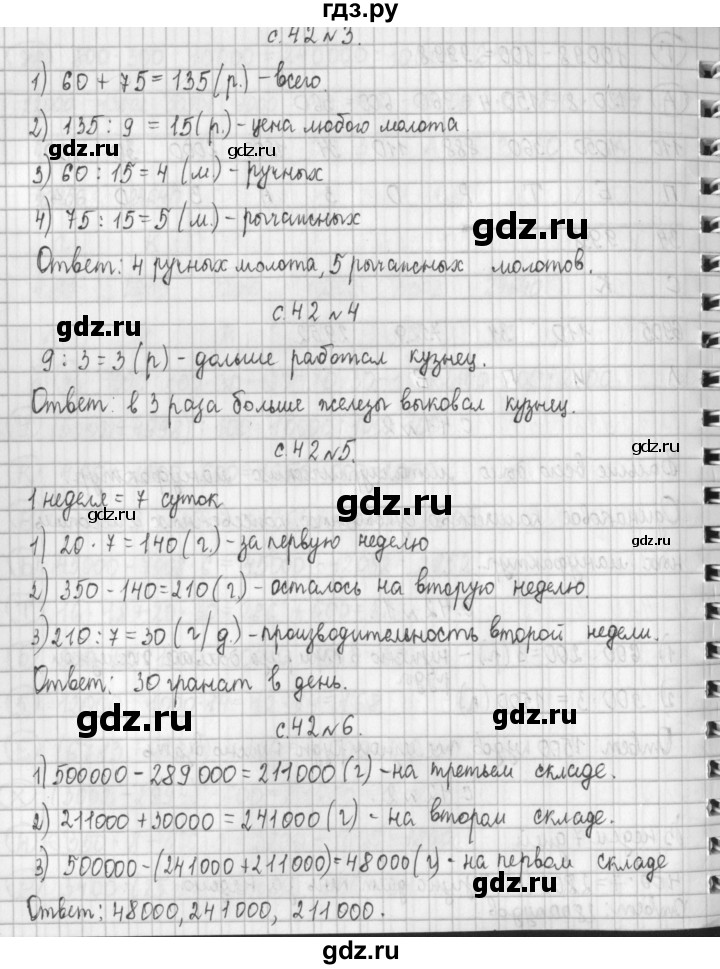 гдз.ру
с.42 №3.
1) 60 + 75 = 135 (р.) - всего.
2) 135 : 9 = 15 (р.) - цена любого молота
gdz.ru
gdz.ru
3) 60 : 15 = 4 (м) - ручных
4) 75 : 15 = 5 (м) - рычапсных
gdz.ru
Ответ: 4 ручных молота, 5 рычапсных молотов.
с.42 №4
gdz.ru
9 : 3 = 3 (р) - дольше работал кузнец.
Ответ: в 3 раза больше железы выковал кузнец.
с.42 №5.
gdz.ru
1 неделя = 7 суток
gdz.ru
gdz.ru
1) 20 · 7 = 140 (г.) - за первую неделю
2) 350 - 140 = 210 (г.) - осталось на вторую неделю
gdz.ru
3) 210 : 7 = 30 (г/д.) - производительность второй недели.
Ответ: 30 гранат в день.
gdz.ru
gdz.ru
с.42 №6.
1) 500000 - 289000 = 211000 (г) - на третьем складе.
2) 211000 + 30000 = 241000 (г) - на втором складе.
gdz.ru
gdz.ru
3) 500000 - (241000 + 211000) = 48000 (г) - на первом складе
gdz.ru
Ответ: 48000, 241000, 211000.
gdz.ru
гдз.ру